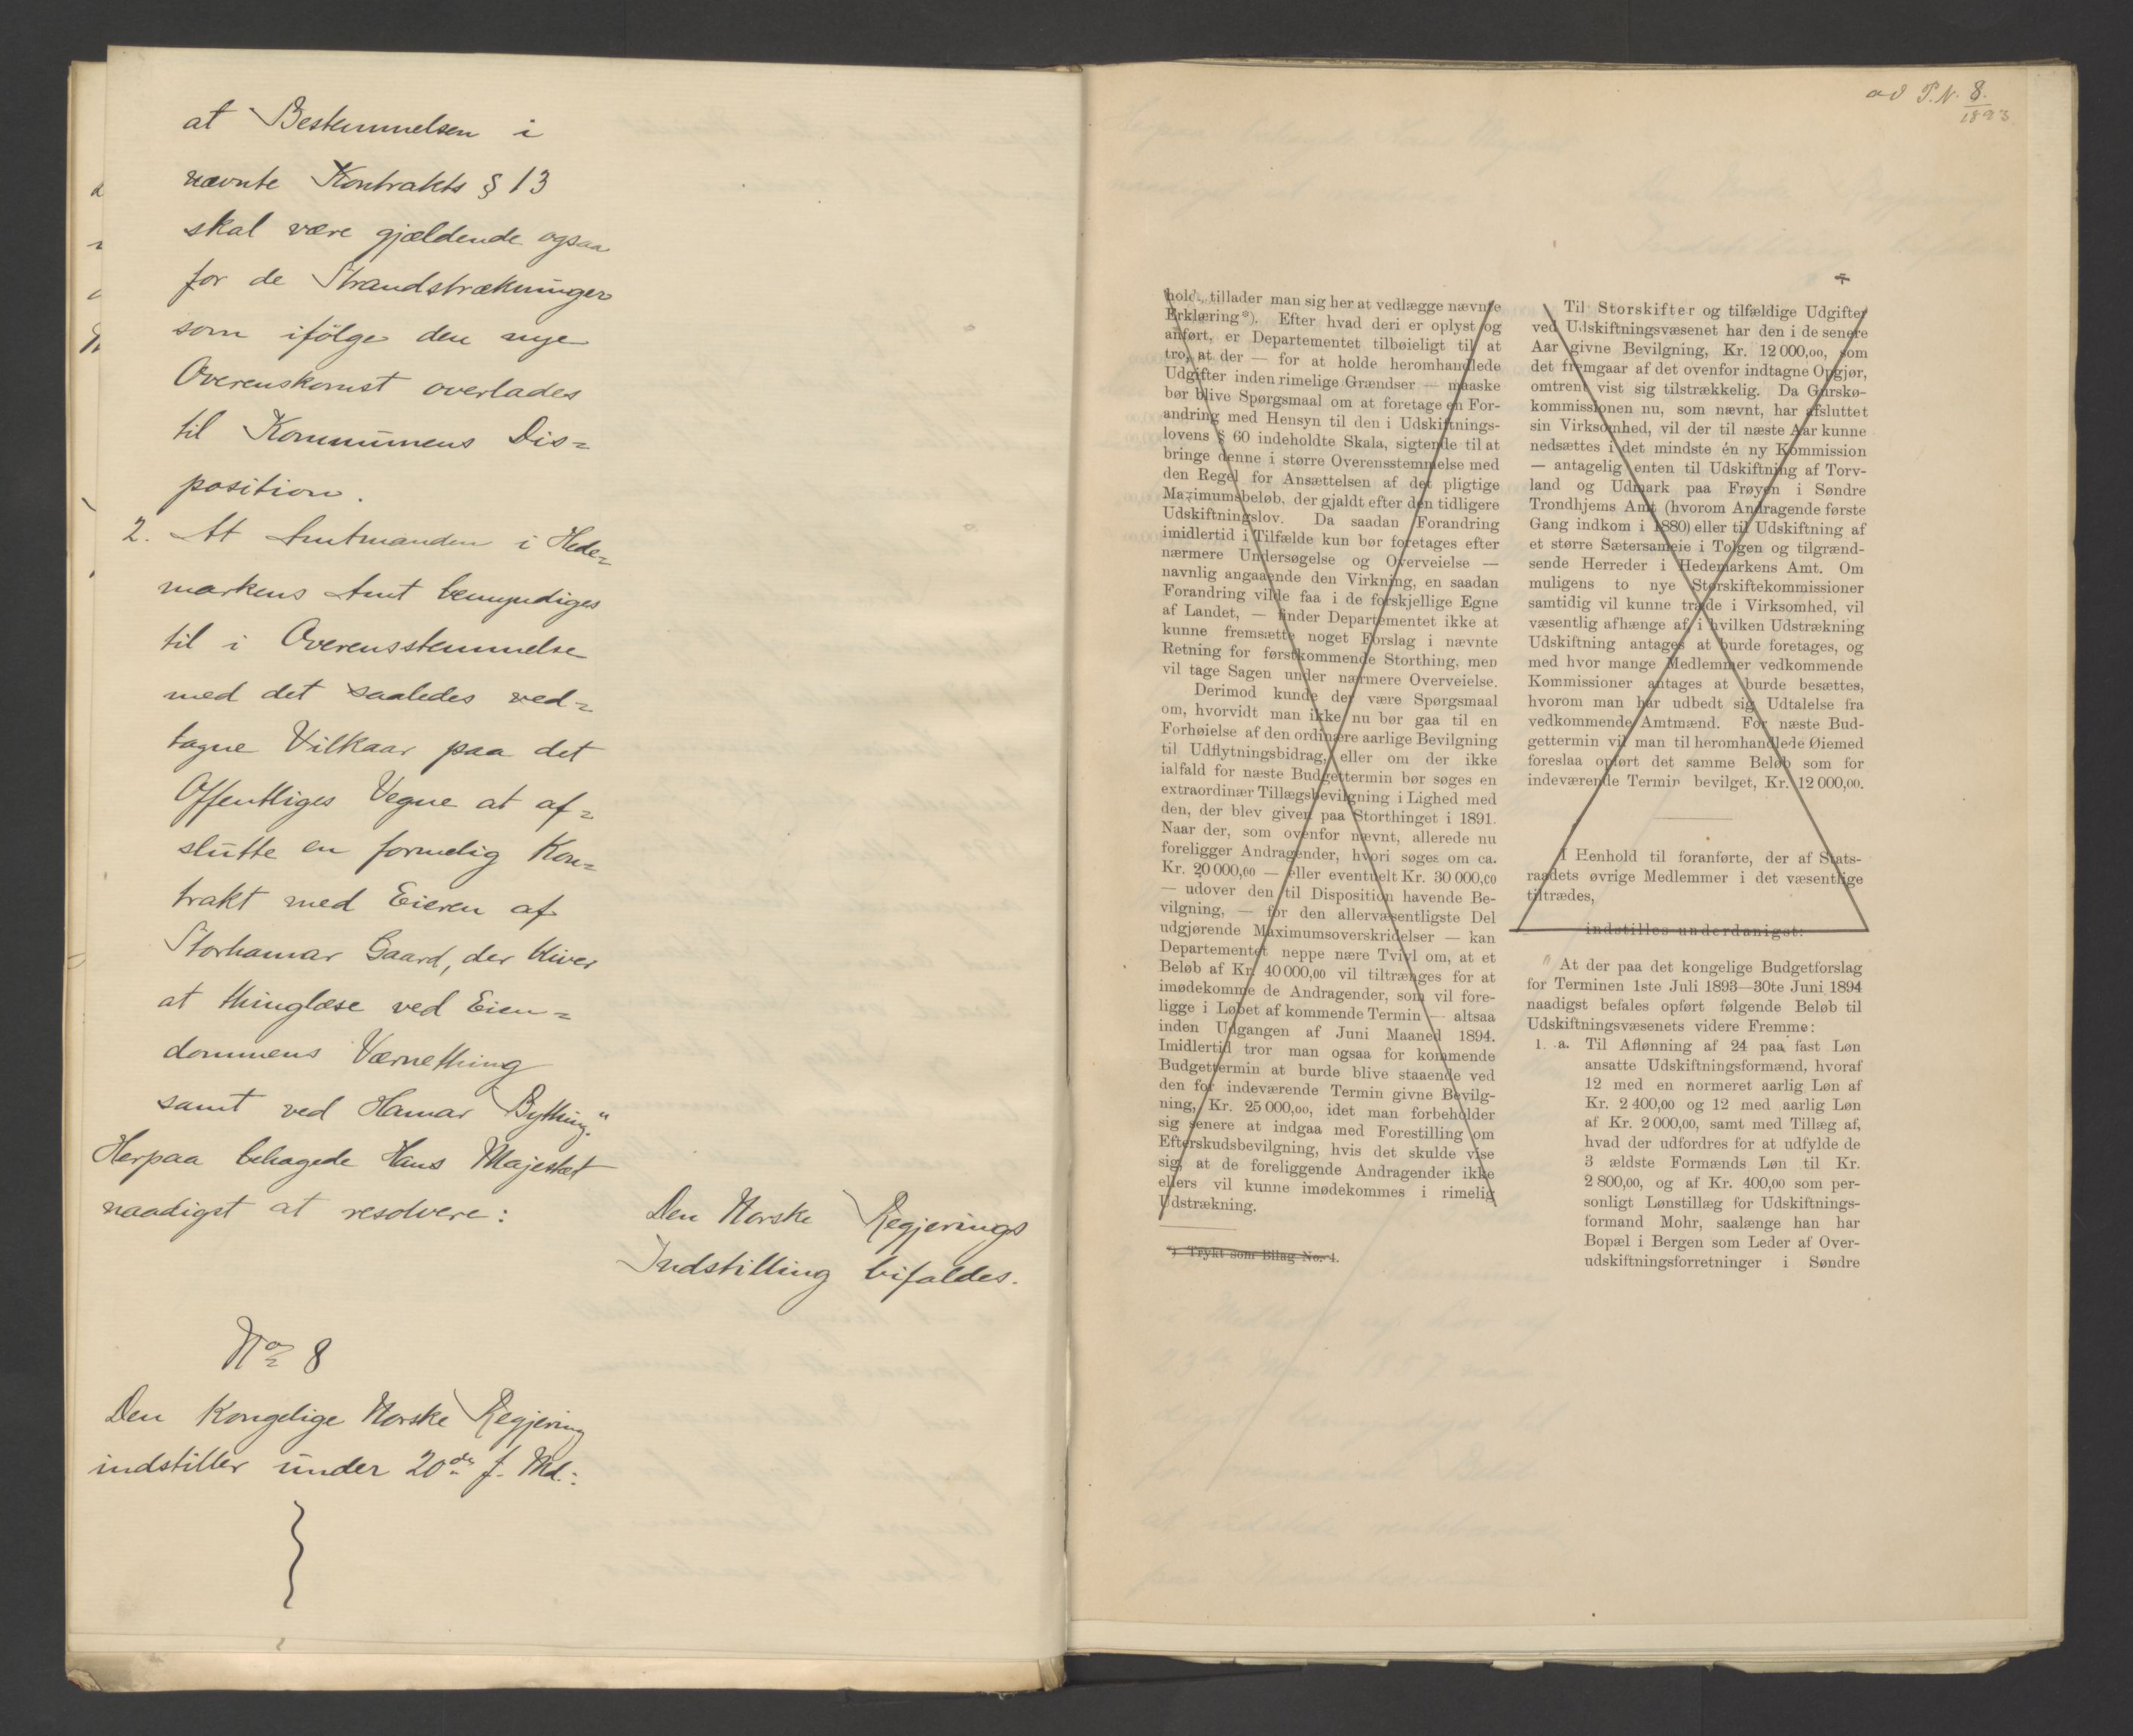 at Bestemmelsen i
nævnte Kontrakts § 13
skal være gjældende ogsaa
for de Strandstrækninger
som ifölge den nye
Overenskomst overlades
til Kommunens Dis=
position.
2. At Amtmanden i Hede=
markens Amt bemyndiges
til i Overensstemmelse
med det saaledes ved=
tagne Vilkaar paa det
Offentliges Vegne at af=
slutte en formelig Kon=
trakt med Eieren af
Storhamar Gaard, der bliver
at thinglæse ved Eien=
dommens Værnething
samt ved Hamar Bything."
Herpaa behagede Hans Majestæt
naadigst at resolvere:
Den Norske Regjerings
Indstilling bifaldes.
No 8
Den Kongelige Norske Regjering
indstiller under 20de f. Md.:
ad P. N. 8.
1893
hold, tillader man sig her at vedlægge nævnte
Erklæring*). Efter hvad deri er oplyst og
anført, er Departementet tilbøieligt til at
tro, at der — for at holde heromhandlede
Udgifter inden rimelige Grændser — maaske
bør blive Spørgsmaal om at foretage en For-
andring med Hensyn til den i Udskiftnings-
lovens § 60 indeholdte Skala, sigtende til at
bringe denne i større Overensstemmelse med
den Regel for Ansættelsen af det pligtige
Maximumsbeløb, der gjaldt efter den tidligere
Udskiftningslov. Da saadan Forandring
imidlertid i Tilfælde kun bør foretages efter
nærmere Undersøgelse og Overveielse —
navnlig angaaende den Virkning, en saadan
Forandring vilde faa i de forskjellige Egne
af Landet, — finder Departementet ikke at
kunne fremsætte noget Forslag i nævnte
Retning for førstkommende Storthing, men
vil tage Sagen under nærmere Overveielse.
Derimod kunde der være Spørgsmaal
om, hvorvidt man ikke nu bør gaa til en
Forhøielse af den ordinære aarlige Bevilgning
til Udflytningsbidrag, eller om der ikke
ialfald for næste Budgettermin bør søges en
extraordinær Tillægsbevilgning i Lighed med
den, der blev given paa Storthinget i 1891.
Naar der, som ovenfor nævnt, allerede nu
foreligger Andragender, hvori søges om ca.
Kr. 20 000,00 — eller eventuelt Kr. 30 000,00
— udover den til Disposition havende Be-
vilgning, — for den allervæsentligste Del
udgjørende Maximumsoverskridelser — kan
Departementet neppe nære Tvivl om, at et
Beløb af Kr. 40 000,00 vil tiltrænges for at
imødekomme de Andragender, som vil fore-
ligge i Løbet af kommende Termin — altsaa
inden Udgangen af Juni Maaned 1894.
Imidlertid tror man ogsaa for kommende
Budgettermin at burde blive staaende ved
den for indeværende Termin givne Bevilg-
ning, Kr. 25 000,00, idet man forbeholder
sig senere at indgaa med Forestilling om
Efterskudsbevilgning, hvis det skulde vise
sig, at de foreliggende Andragender ikke
ellers vil kunne imødekommes i rimelig
Udstrækning.
*) Trykt som Bilag No. 4.
Til Storskifter og tilfældige Udgifter
ved Udskiftningsvæsenet har den i de senere
Aar givne Bevilgning, Kr. 12 000,00, som
det fremgaar af det ovenfor indtagne Opgjør,
omtrent vist sig tilstrækkelig. Da Gurskø-
kommissionen nu, som nævnt, har afsluttet
sin Virksomhed, vil der til næste Aar kunne
nedsættes i det mindste én ny Kommission
— antagelig enten til Udskiftning af Torv-
land og Udmark paa Frøyen i Søndre
Trondhjems Amt (hvorom Andragende første
Gang indkom i 1880) eller til Udskiftning af
et større Sætersameie i Tolgen og tilgrænd-
sende Herreder i Hedemarkens Amt. Om
muligens to nye Storskiftekommissioner
samtidig vil kunne træde i Virksomhed, vil
væsentlig afhænge af, i hvilken Udstrækning
Udskiftning antages at burde foretages, og
med hvor mange Medlemmer vedkommende
Kommissioner antages at burde besættes,
hvorom man har udbedt sig Udtalelse fra
vedkommende Amtmænd. For næste Bud-
gettermin vil man til heromhandlede Øiemed
foreslaa opført det samme Beløb som for
indeværende Termin bevilget, Kr. 12 000,00.
I Henhold til foranførte, der af Stats-
raadets øvrige Medlemmer i det væsentlige
tiltrædes,
indstilles underdanigst:
"At der paa det kongelige Budgetforslag
for Terminen 1ste Juli 1893—30te Juni 1894
naadigst befales opført følgende Beløb til
Udskiftningsvæsenets videre Fremme:
1. a. Til Aflønning af 24 paa fast Løn
ansatte Udskiftningsformænd, hvoraf
12 med en normeret aarlig Løn af
Kr. 2 400,00 og 12 med aarlig Løn
af Kr. 2 000,00, samt med Tillæg af,
hvad der udfordres for at udfylde de
3 ældste Formænds Løn til Kr.
2 800,00, og af Kr. 400,00 som per-
sonligt Lønstillæg for Udskiftnings-
formand Mohr, saalænge han har
Bopæl i Bergen som Leder af Over-
udskiftningsforretninger i Søndre